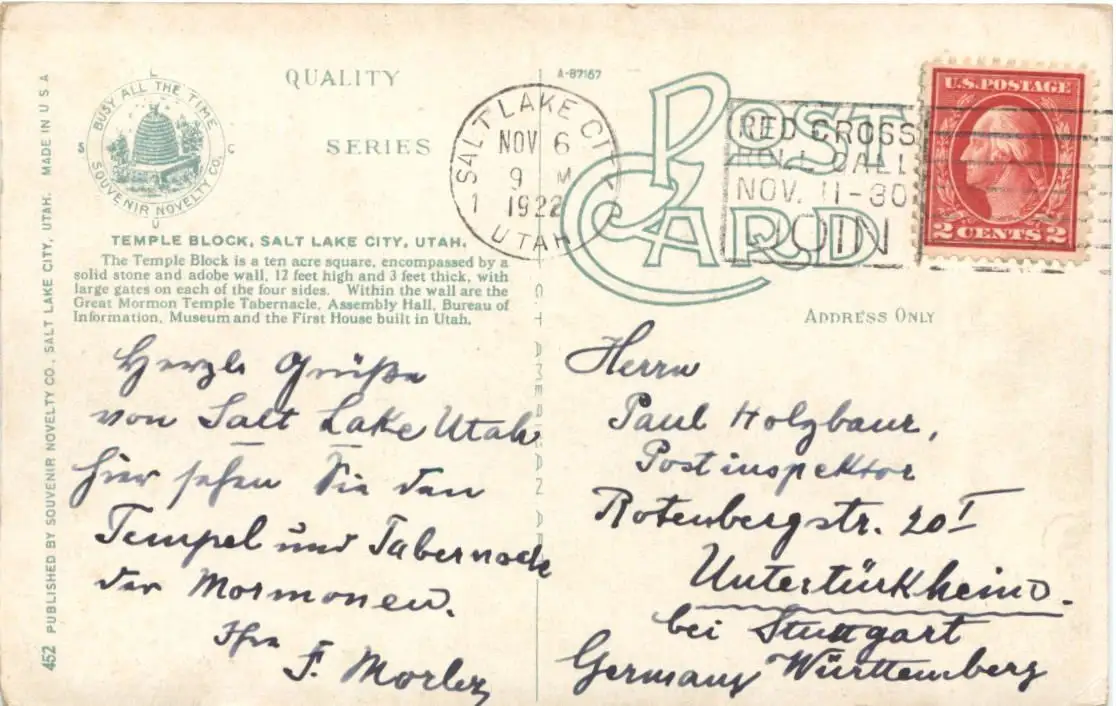 QUALITY
SERIES
BUSY ALL THE TIME
SOUVENIR NOVELTY CO.
S L C U
TEMPLE BLOCK, SALT LAKE CITY, UTAH.
The Temple Block is a ten acre square, encompassed by a
solid stone and adobe wall, 12 feet high and 3 feet thick, with
large gates on each of the four sides. Within the wall are the
Great Mormon Temple Tabernacle, Assembly Hall, Bureau of
Information, Museum and the First House built in Utah.
452 PUBLISHED BY SOUVENIR NOVELTY CO., SALT LAKE CITY, UTAH. MADE IN U S A
A-87167
POST
CARD
ADDRESS ONLY
SALT LAKE CITY
NOV 6
9 M
1 1922
UTAH
RED CROSS
ROLL CALL
NOV. 11-30
JOIN
U.S. POSTAGE
2 CENTS 2
Herzl. Grüße
von Salt Lake Utah
hier sehen Sie den
Tempel und Tabernacle
der Mormonen.
Ihr
Herrn
Paul Holzbaur,
Postinspektor
Rotenbergstr. 20 I
Untertürkheim.
bei Stuttgart
Germany Württemberg